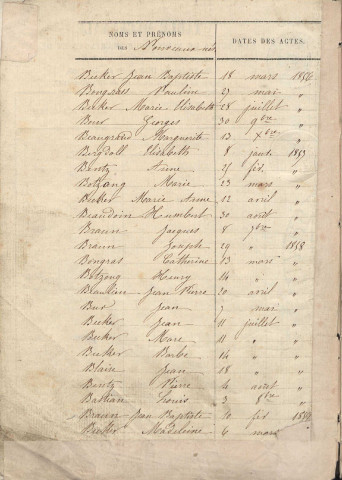 NOMS ET PRÉNOMS DATES DES ACTES.
DES Nouveaux-nés
Becker Jean Baptiste 18 mars 1856
Bongras Pauline 27 mai "
Becker Marie Elisabeth 28 juillet "
Boer Georges 30 9bre "
Beaugrand Marguerite 13 Xbre "
Bergdoll Elisabeth 8 janv. 1857
Bentz Anne 25 fév. "
Botzong Marie 23 mars "
Becker Marie Anne 12 avril "
Beaudoin Humbert 30 août "
Braun Jacques 8 7bre "
Braun Joseph 29 " 1858
Bongras Catherine 13 mars "
Botzong Henry 14 " "
Beaulieu Jean Pierre 20 avril "
Bur Jean 7 mai "
Becker Jean 11 juillet "
Becker Marc 11 " "
Becker Barbe 14 " "
Blaise Jean 18 " "
Bentz Pierre 4 août "
Bastian Louis 3 8bre "
Braun Jean Baptiste 10 fév.
Becker Madeleine 6 mars